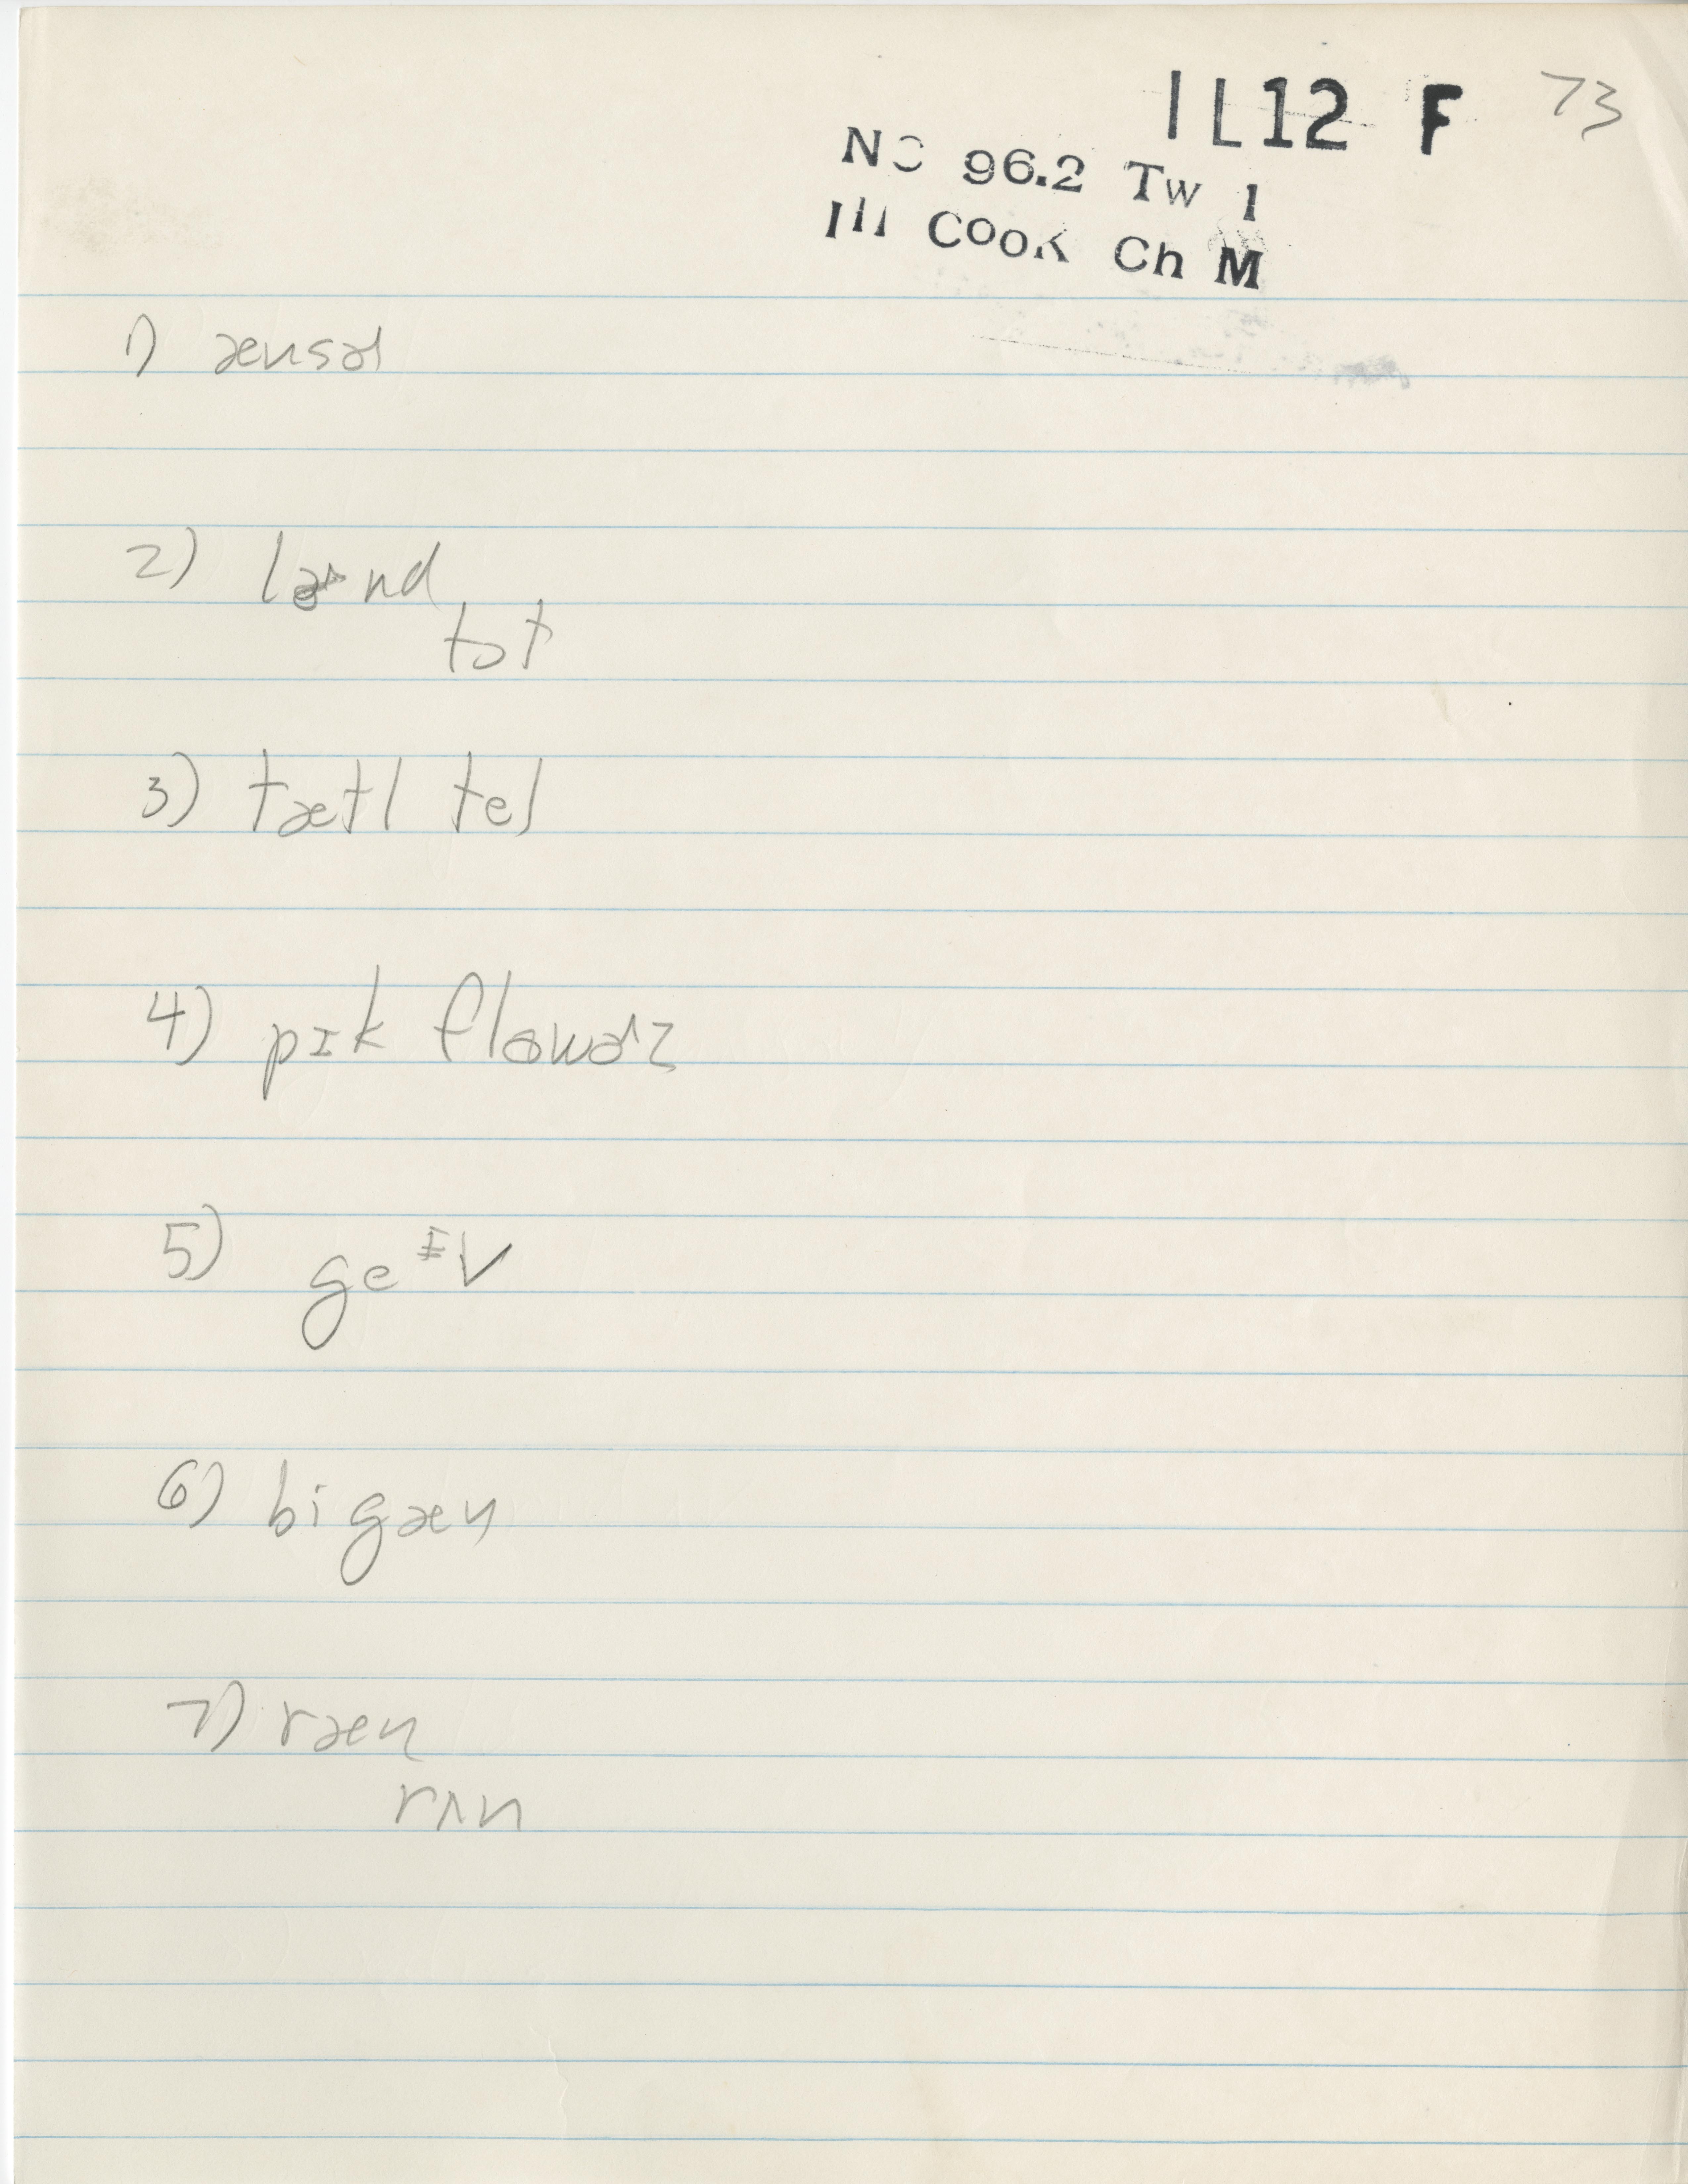 IL12 F 73
NC 96.2 Tw 1
Ill Cook Ch M
1) ænsɚ
2) lɚnd
tɔt
3) tætl tel
4) pɪk flɑwɚz
5) geᶦv
6) bigæn
7) ræn
rʌn